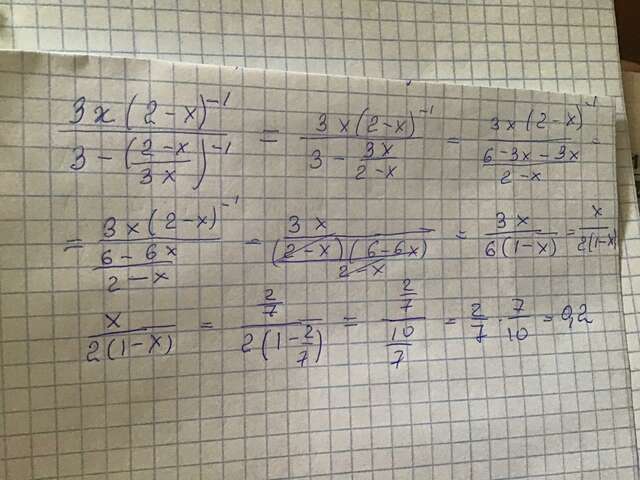 \frac{3x(2-x)^{-1}}{3-\left(\frac{2-x}{3x}\right)^{-1}} = \frac{3x(2-x)^{-1}}{3-\frac{3x}{2-x}} = \frac{3x(2-x)^{-1}}{\frac{6-3x-3x}{2-x}} =
= \frac{3x(2-x)^{-1}}{\frac{6-6x}{2-x}} = \frac{3x}{\frac{(2-x)(6-6x)}{2-x}} = \frac{3x}{6(1-x)} = \frac{x}{2(1-x)}
\frac{x}{2(1-x)} = \frac{\frac{2}{7}}{2\left(1-\frac{2}{7}\right)} = \frac{\frac{2}{7}}{\frac{10}{7}} = \frac{2}{7} \cdot \frac{7}{10} = 0,2